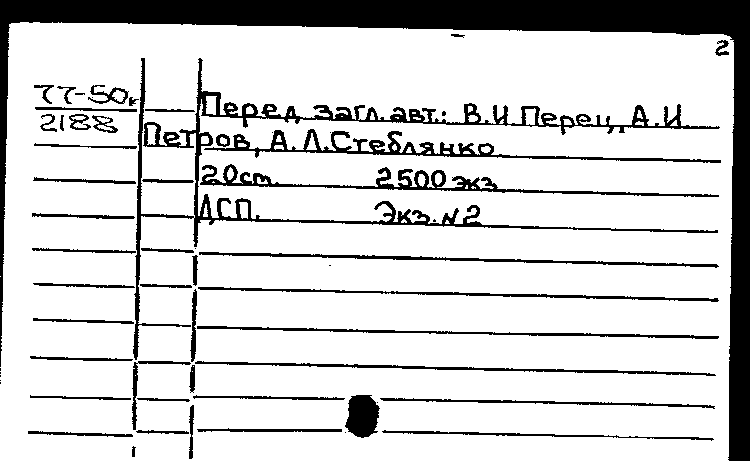 2
77-50к Перед загл.авт.: В.И.Перец, А.И.
2188 Петров, А.Л.Стеблянко
20см. 2500 экз.
ДСП. Экз.№2